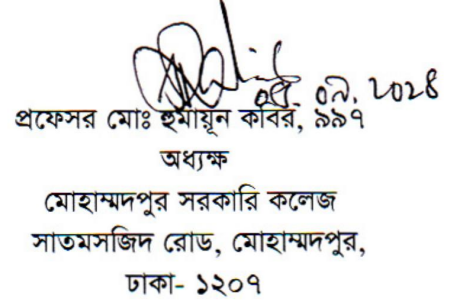 ০৯. ২০২৪
প্রফেসর মোঃ হুমায়ূন কবির, ৯৯৭
অধ্যক্ষ
মোহাম্মদপুর সরকারি কলেজ
সাতমসজিদ রোড, মোহাম্মদপুর,
ঢাকা- ১২০৭